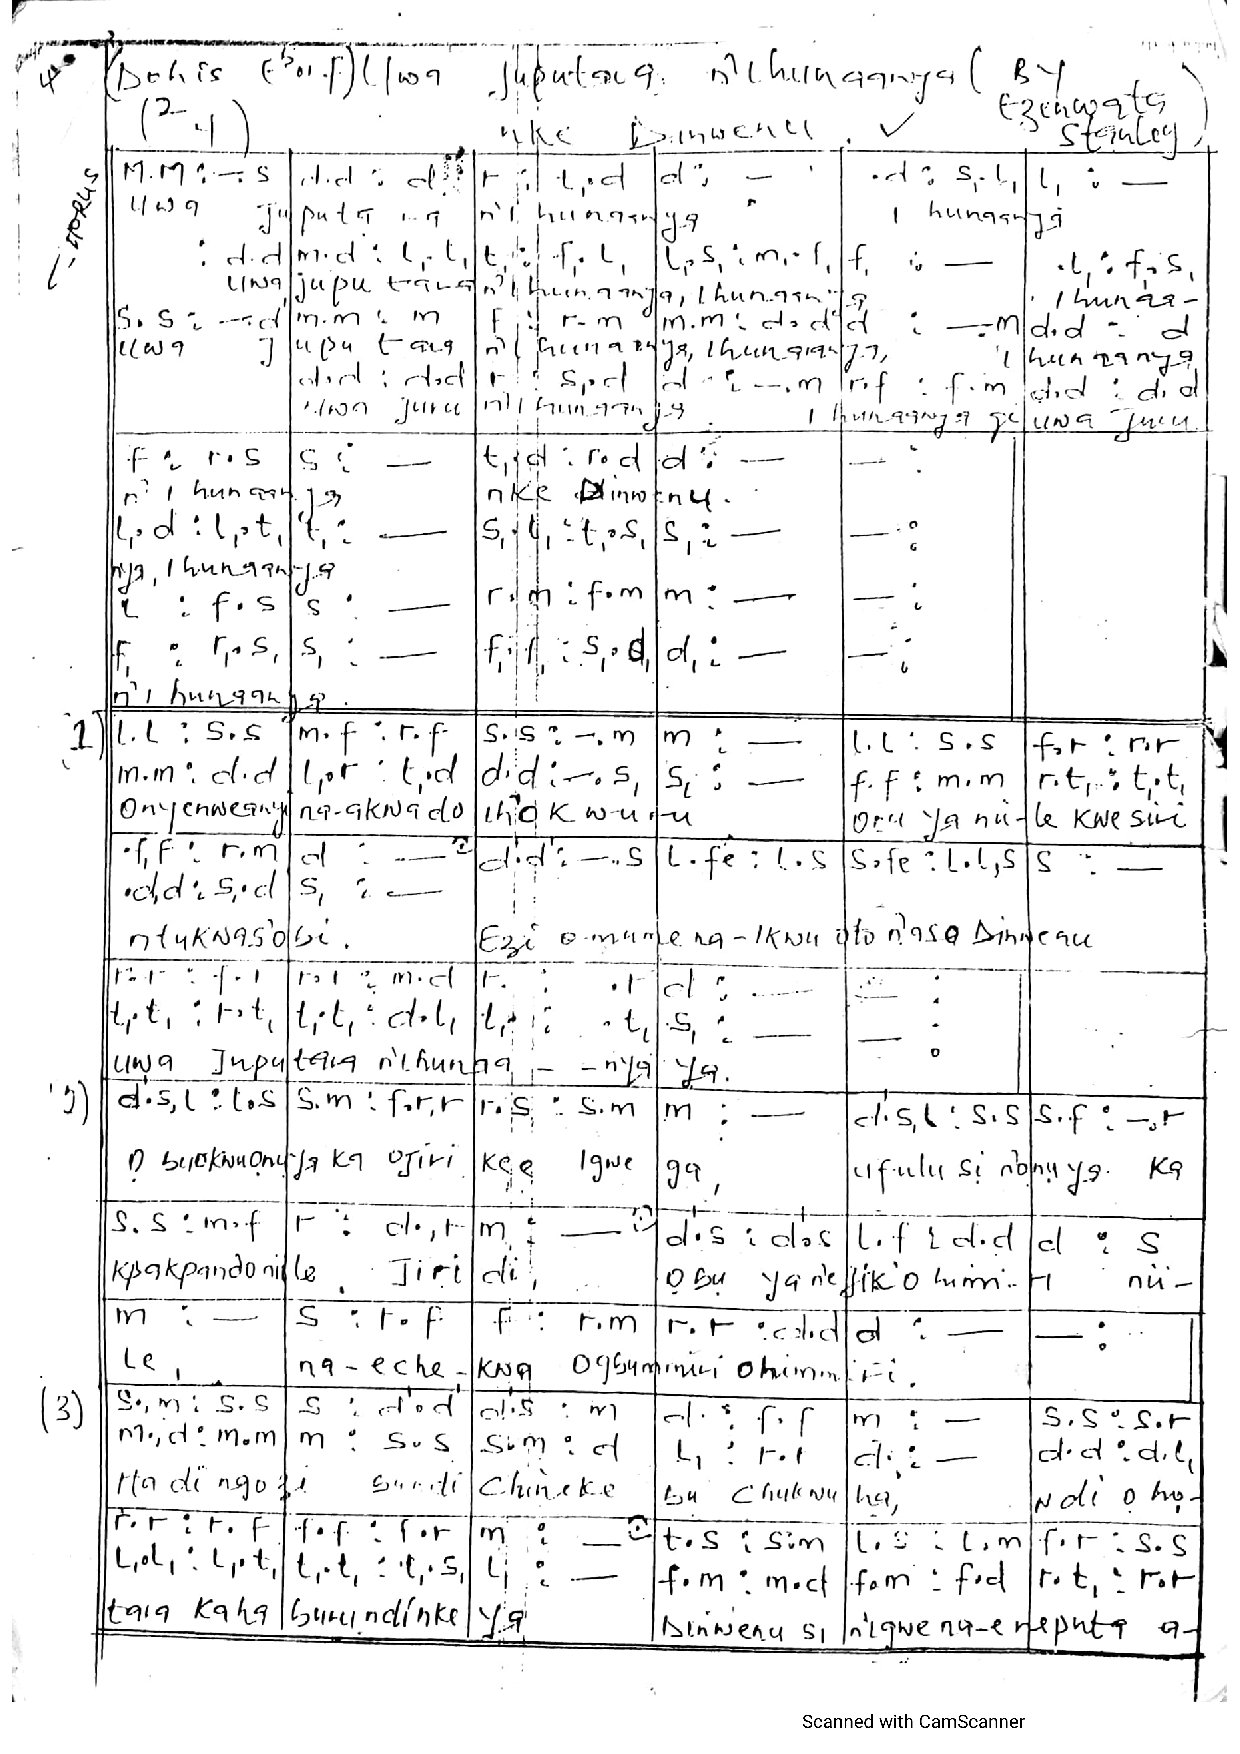 4. (Doh is E♭ or F) Uwa juputara n'ihunaanya (By Ezenwata Stanley)
(2/4) nke Dinwenu. ✓
CHORUS
M.M : -.s | d.d : d | r : t,.d | d : - | .d : s,.l, | l, : -
uwa juputara n'ihunaanya ihunaanya
: d.d | m.d : l,.l, | t, : f,.l, | l,.s, : m,.f, | f, : - | .l, : f,.s,
uwa juputara n'ihunaanya, ihunaanya ihunaa-
s.s : -.d | m.m : m | f : r.m | m.m : d.d | d : -.m | d.d : d
uwa juputara n'ihunaanya, ihunaanya, ihunaanya
d.d : d.d | r : s,.d | d : -.m | r.f : f.m | d.d : d.d
uwa juru n'ihunaanya ihunaanya ya uwa juru
f : r.s | s : - | t,.d : r.d | d : - | - :
n'ihunaanya nke Dinwenu.
l,.d : l,.t, | t, : - | s,.l, : t,.s, | s, : - | - :
nya, ihunaanya
l : f.s | s : - | r.m : f.m | m : - | - :
f, : r,.s, | s, : - | f,.f, : s,.d, | d, : - | - :
n'ihunaanya.
1) l.l : s.s | m.f : r.f | s.s : -.m | m : - | l.l : s.s | f.r : r.r
m.m : d.d | l,.r : t,.d | d.d : -.s, | s, : - | f.f : m.m | r.t, : t,.t,
Onyenweanyi na-akwado ihe o kwuru oru ya nii-le kwesiri
.f,f : r.m | d : - | d.d : -.s | l.fe : l.s | s.fe : l.l,s | s : -
.d,d : s,.d | s, : -
ntukwasobi. Ezi omume na-ikwu oto n'aso Dinwenu
r.r : f.r | r.r : m.d | r. : .r | d : - | - :
t,.t, : r.t, | t,.t, : d.l, | t,. : .t, | s, : - | - :
uwa juputara n'ihunaa - - nya ya.
2) d.s,l : l.s | s.m : f.r,r | r.s : s.m | m : - | d.s,l : s.s | s.f : -.r
O bu okwu onu ya ka ojiri kee igwe ga, ufulu si n'onu ya ka
s.s : m.f | r : d.,r | m : - | d.s : d.s | l.f : d.d | d : s
kpakpando niile jiri di, O bu ya n'ejik'o himi-ri nii-
m : - | s : r.f | f : r.m | r.r : d.d | d : - | - :
le, na-eche-kwa Ogbummiri ohimmiri.
(3) s.,m : s.s | s : d.d | d.s : m | d : f.f | m : - | s.s : s.r
m.,d : m.m | m : s.s | s.m : d | l, : r.r | d : - | d.d : d.l,
Ha di ngozi bu ndi Chineke bu Chukwu ha, Ndi o ho-
r.r : r.f | f.f : f.r | m : - | t.s : s.m | l.s : l.m | f.r : s.s
l,.l, : l,.t, | t,.t, : t,.s, | l, : - | f.m : m.d | f.m : f.d | r.t, : r.r
tara ka ha buru ndi nke ya Dinwenu si n'igwe na-eneputa a-
Scanned with CamScanner